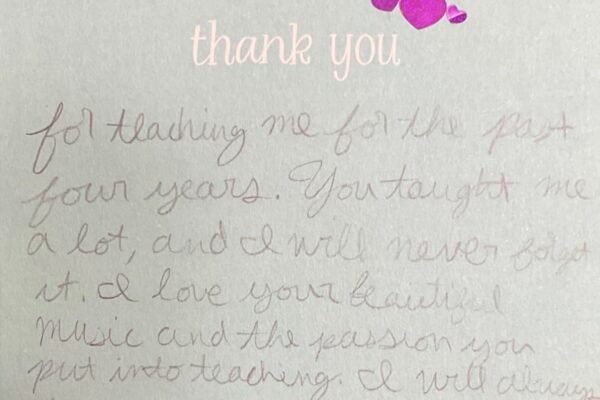 thank you
for teaching me for the past
four years. You taught me
a lot, and I will never forget
it. I love your beautiful
music and the passion you
put into teaching. I will always